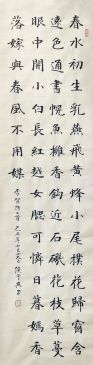 春水初生乳燕飛黃蜂小尾撲花歸窗含
遠色通書幌魚擁香鉤近石磯花枝草蔓
眼中開小白長紅越女腮可憐日暮嫣香
落嫁與春風不用媒
李賀詩二首